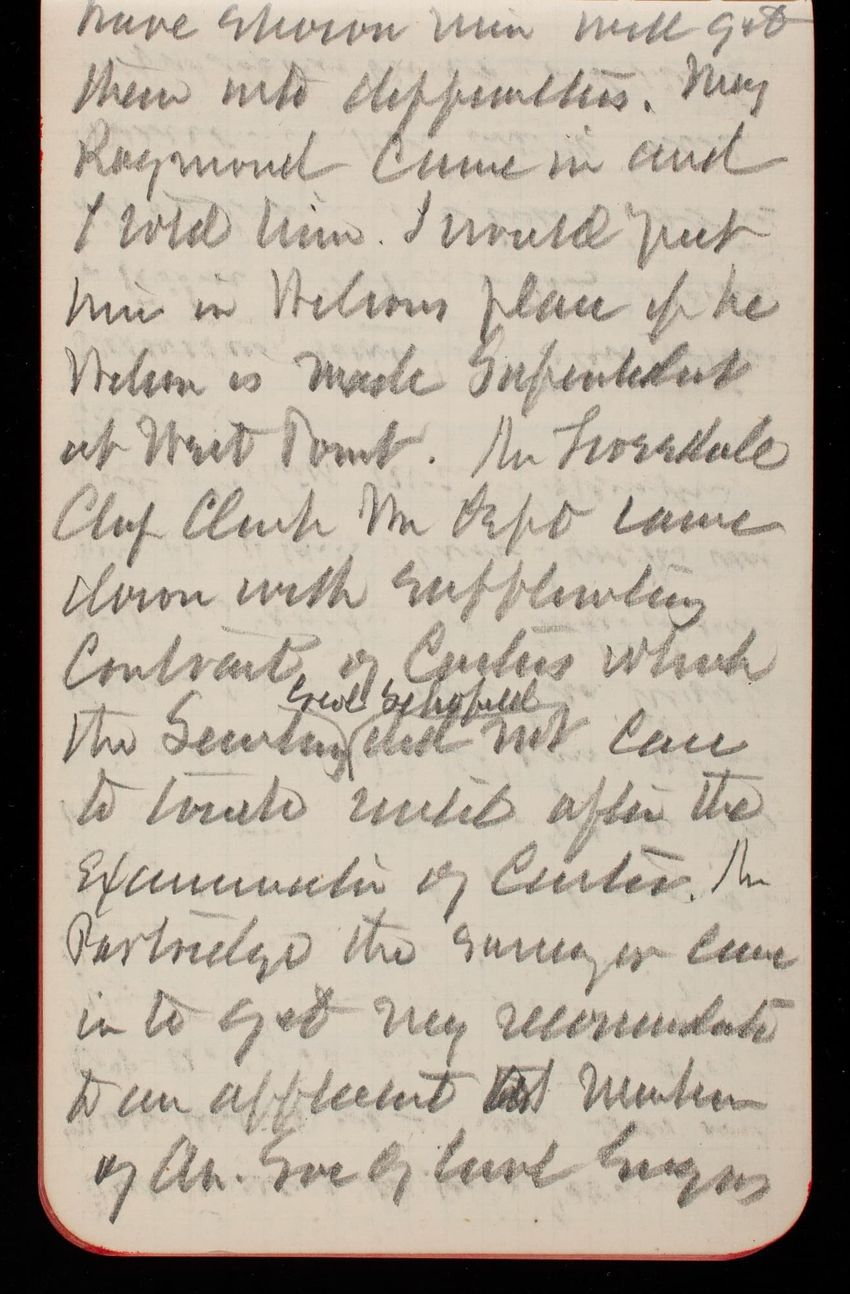 have shown him will get
them into difficulties. Maj
Raymond came in and
I told him. I would put
him in Wilsons place if he
Wilson is made Supentedent
at West Point. Mr
Chief Clerk War Dept came
down with supplementary
Contract of Curtis which
Genl Schofield
the Secretary did not care
to until after the
Examination of Curtis. Mr
Partridge the surveyor came
in to get my recomendate
to an applicant Member
of Am. Soc of Civil Engrs